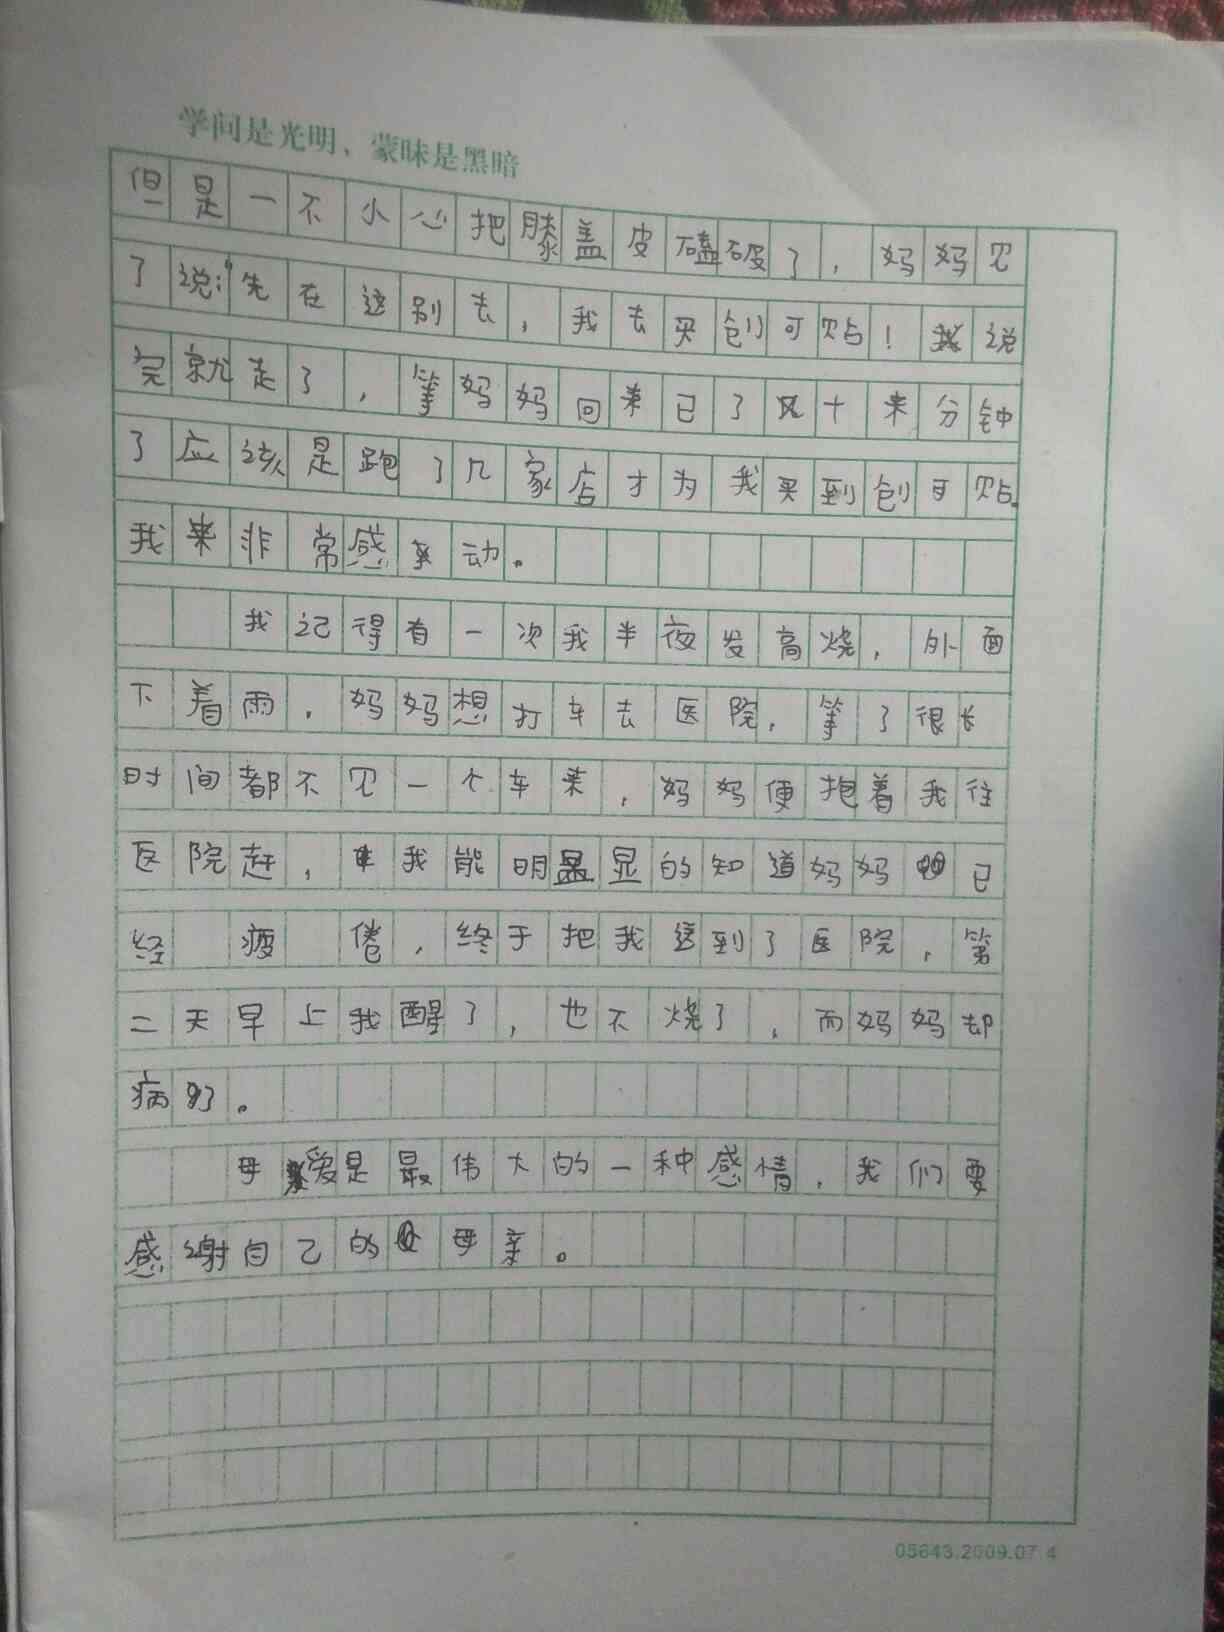 学问是光明、蒙昧是黑暗
但是一不小心把膝盖皮磕破了，妈妈见
了说：“先在这别去，我去买创可贴！说
完就走了，等妈妈回来已了十来分钟
了应该是跑了几家店才为我买到创可贴。
我非常感动。
我记得有一次我半夜发高烧，外面
下着雨，妈妈想打车去医院，等了很长
时间都不见一个车来，妈妈便抱着我往
医院赶，我能明显的知道妈妈已
经疲倦，终于把我送到了医院，第
二天早上我醒了，也不烧了，而妈妈却
病了。
母爱是最伟大的一种感情，我们要
感谢自己的母亲。
05643.2009.07.4